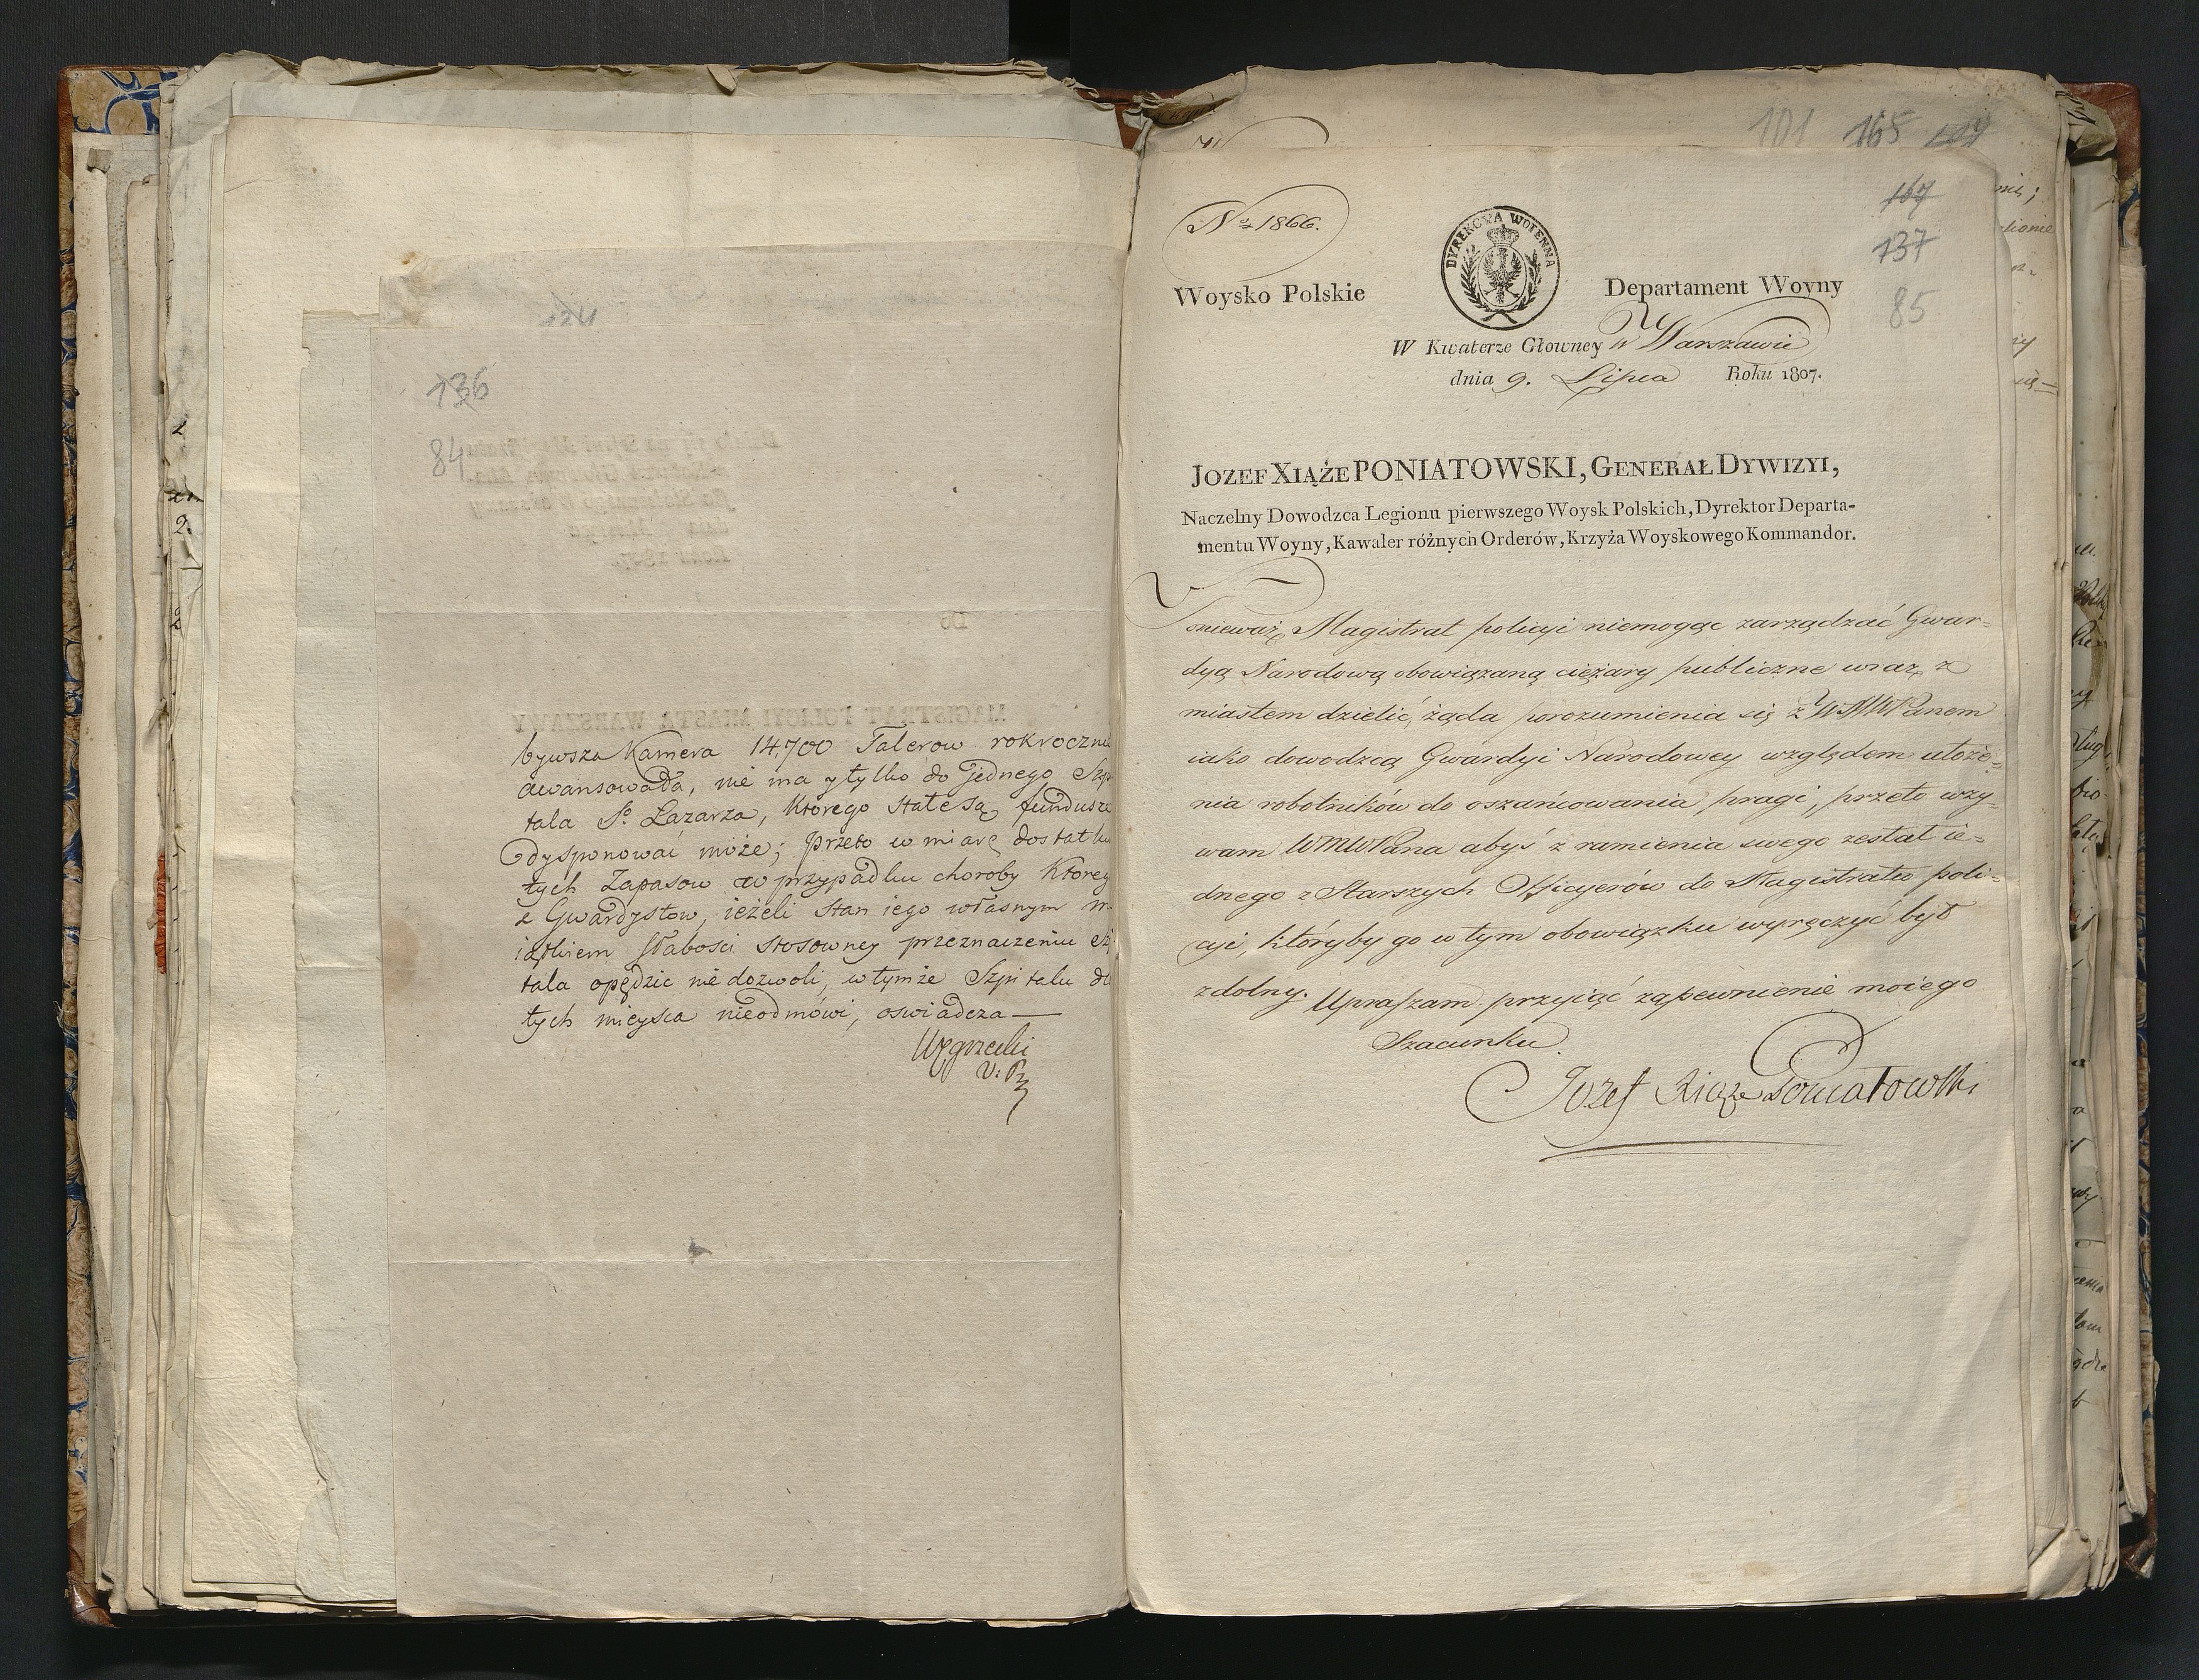 136
84
bywsza Kamera 14.700 Talerow rokroczni
awansowała, nie ma y tylko do jednego Szpi
tala So Lazarza, którego stałe są fundusze
dysponować może; przeto w miarę dostatku
tych Zapasow w przypadku choroby Ktorego
z Gwardystow, ieżeli stan iego własnym m
iątkiem słabości stosowney przeznaczeniu
tala opędzic nie dozwoli, w tymże Szpitalu
tych mieysca nieodmówi, oswiadcza —
Węgrzecki
V: P
101 165
167
137
85
No 1866.
DYREKCYA WOIENNA
Woysko Polskie
Departament Woyny
W Kwaterze Głowney w Warszawie
dnia 9. Lipca Roku 1807.
JOZEF XIĄŻE PONIATOWSKI, GENERAŁ DYWIZYI,
Naczelny Dowodzca Legionu pierwszego Woysk Polskich, Dyrektor Departa-
mentu Woyny, Kawaler różnych Orderów, Krzyża Woyskowego Kommandor.
Ponieważ Magistrat policyi niemogąc zarządzać Gwar=
dyą Narodową obowiązaną ciężary publiczne wraz z
miastem dzielić, żąda porozumienia się z WMWPanem
iako dowodzcą Gwardyi Narodowey względem ułoże=
nia robotników do oszańcowania pragi, przeto wzy=
wam WMWPana abyś z ramienia swego zesłał ie=
dnego z Starszych Officyerów do Magistratu poli=
cyi, któryby go w tym obowiązku wyręczyć był
zdolny. Upraszam przyiąć zapewnienie moiego
Szacunku.
Jozef Xiąże Poniatowski